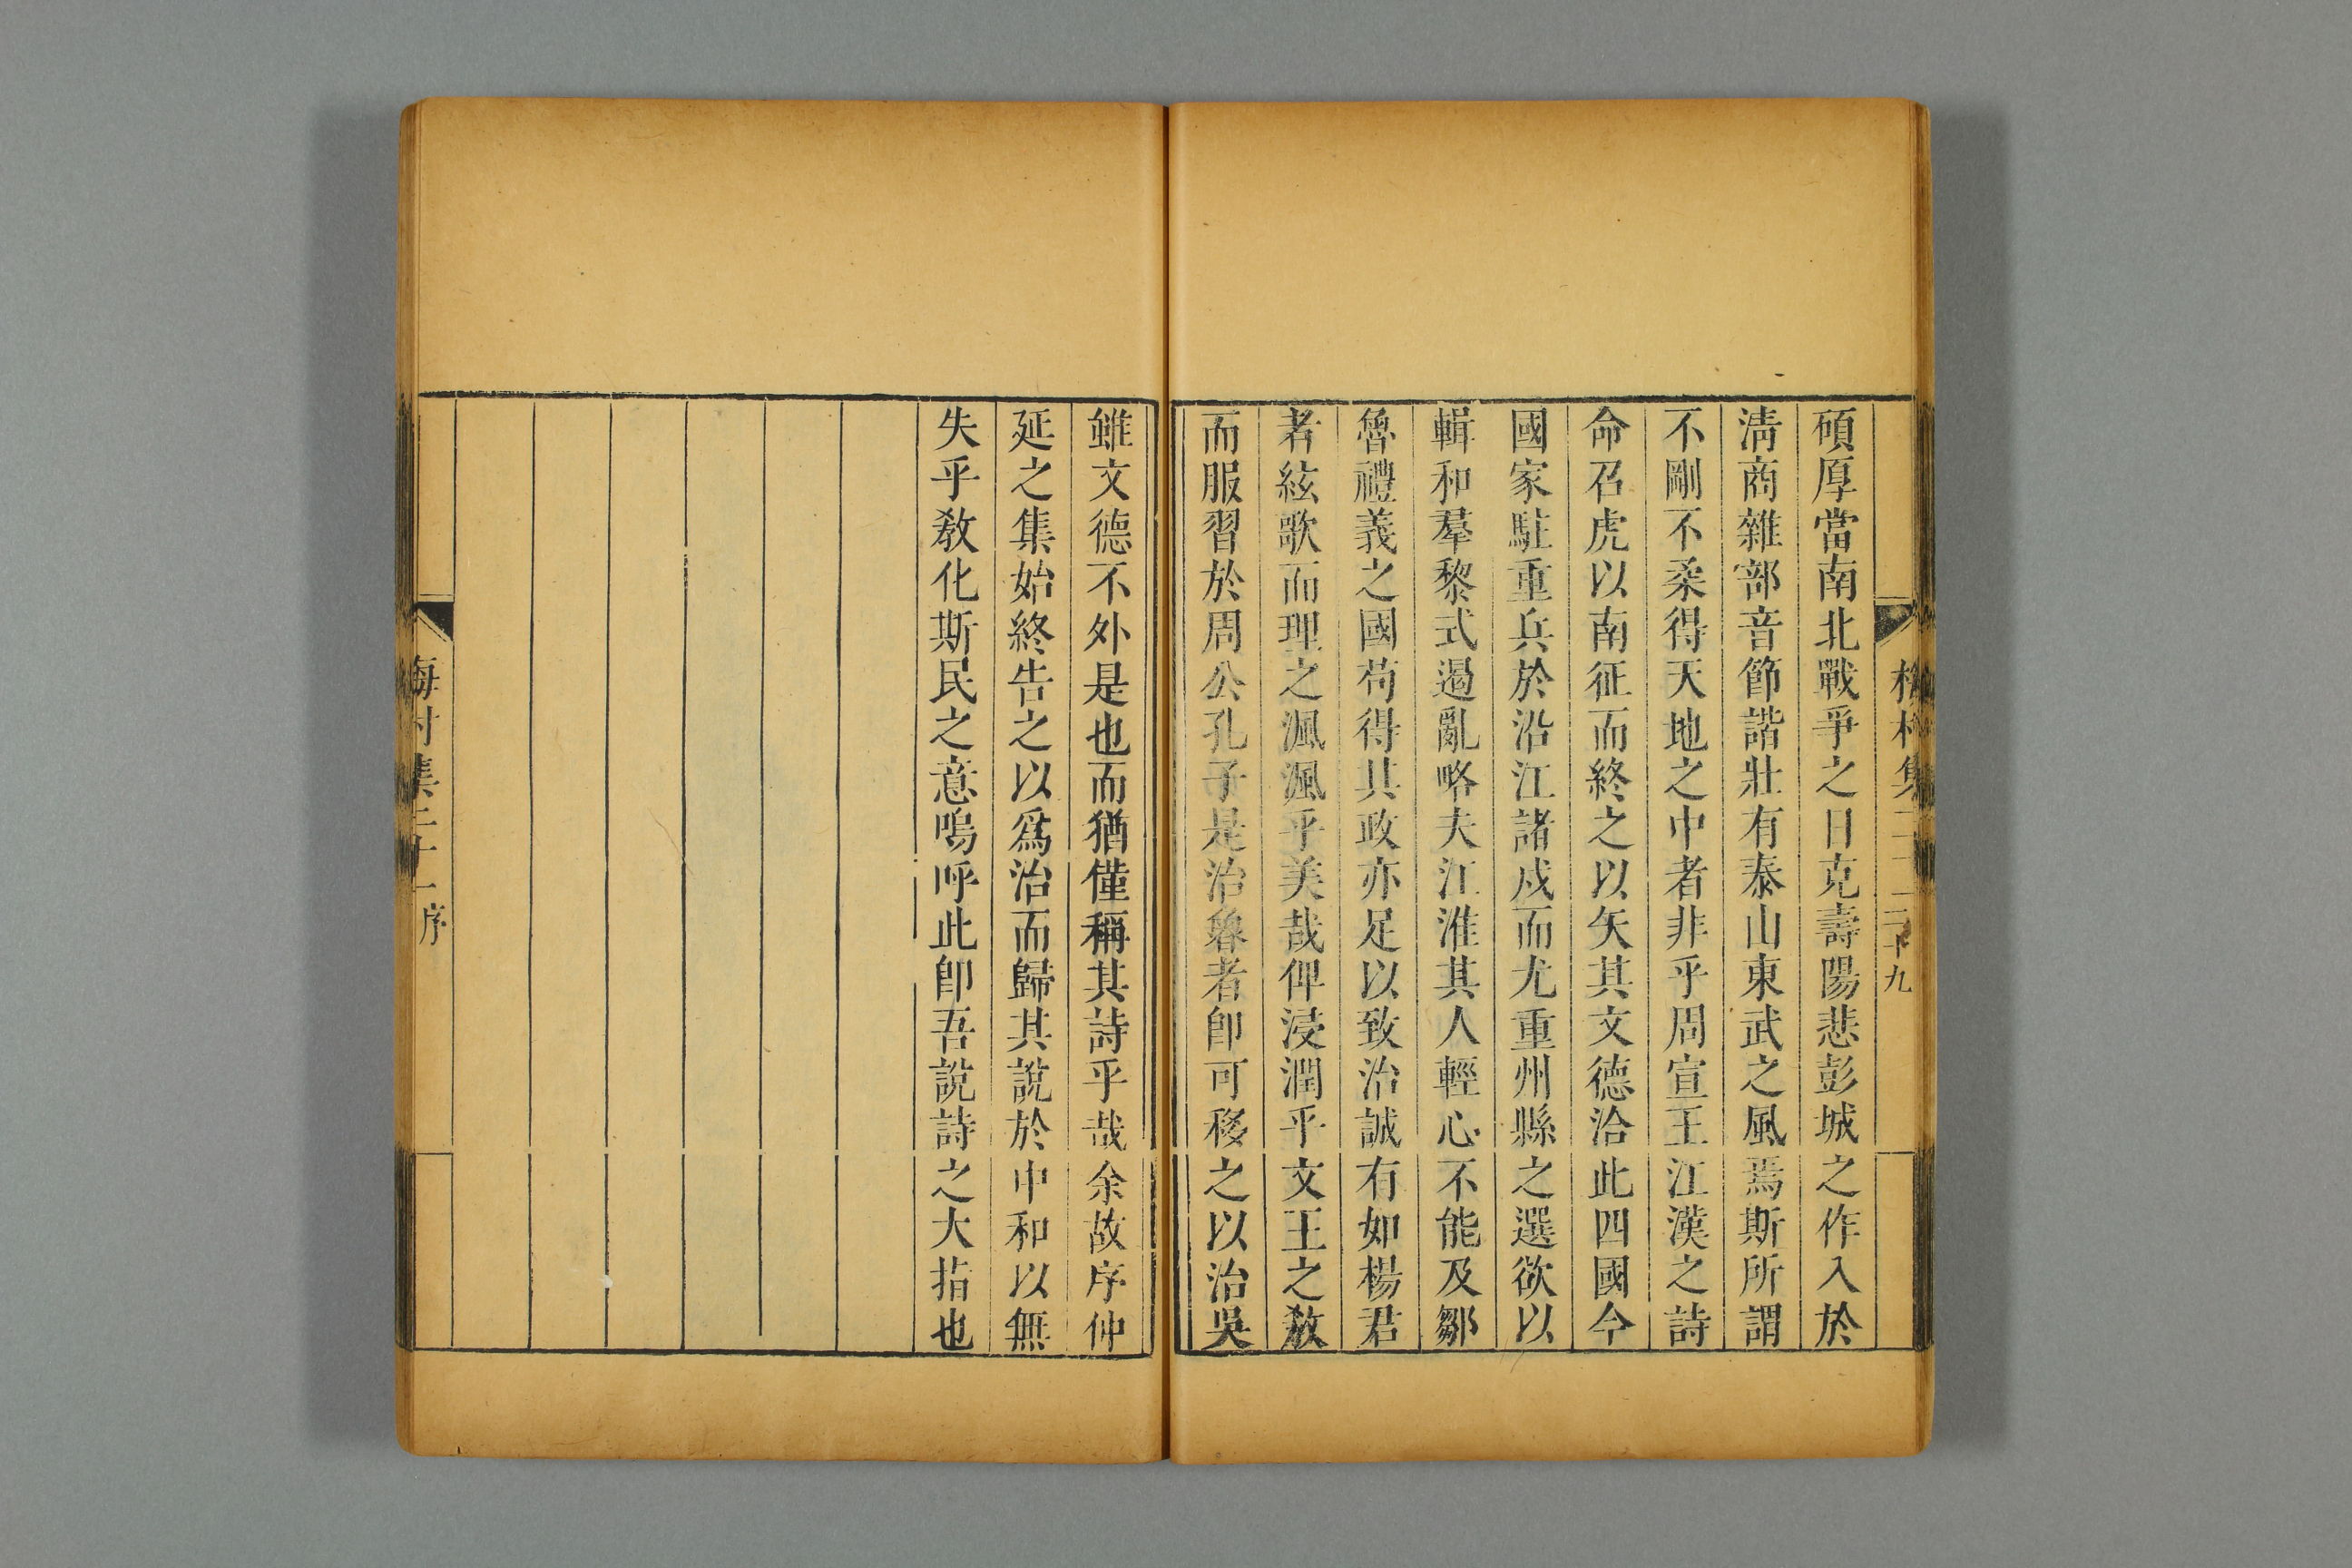 碩厚當南北戰爭之日克壽陽悲彭城之作入於
淸商雜部音節諧壯有泰山東武之風焉斯所謂
不剛不柔得天地之中者非乎周宣王江漢之詩
命召虎以南征而終之以矢其文德洽此四國今
國家駐重兵於沿江諸戍而尤重州縣之選欲以
輯和羣黎式遏亂略夫江淮其人輕心不能及鄒
魯禮義之國苟得其政亦足以致治誠有如楊君
者絃歌而理之渢渢乎美哉俾浸潤乎文王之敎
而服習於周公孔子是治魯者卽可移之以治吳
雖文德不外是也而猶僅稱其詩乎哉余故序仲
延之集始終告之以爲治而歸其說於中和以無
失乎敎化斯民之意嗚呼此卽吾說詩之大指也
梅村集二十一序